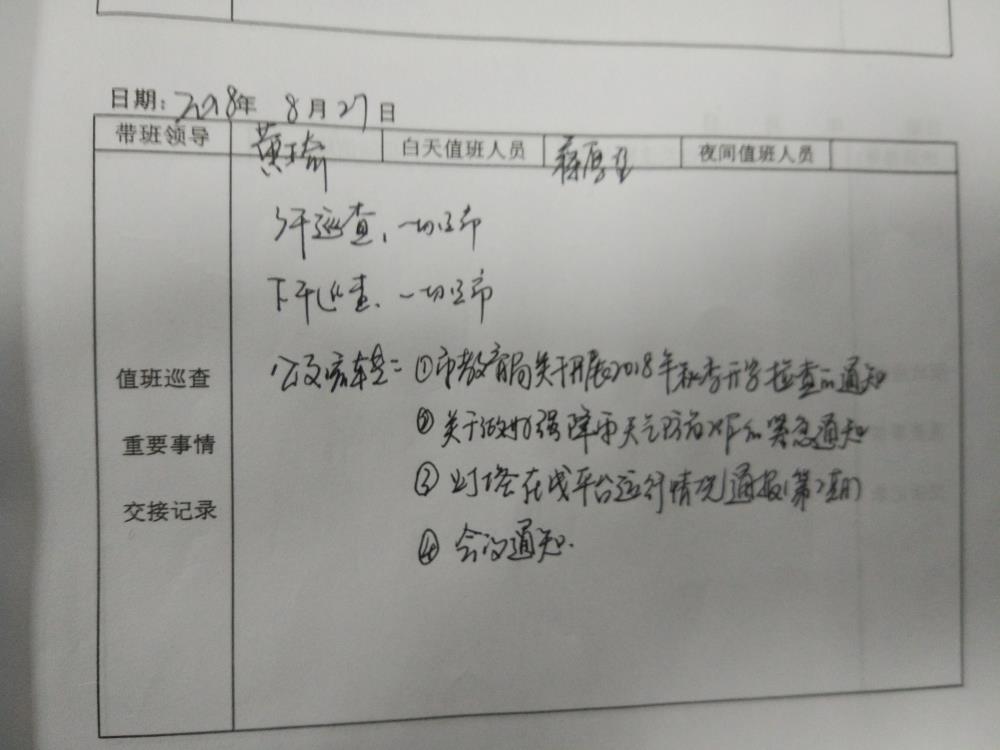 日期：2018年 8月27日
带班领导 黄瑜 白天值班人员 蒋厚 夜间值班人员
上午巡查，一切正常
下午巡查，一切正常
值班巡查
重要事情
交接记录
公文 ：①市教育局关于开展2018年秋季开学检查的通知
②关于做好强降雨天气防范工作的紧急通知
③ 在线平台运行情况通报（第2期）
④会议通知.